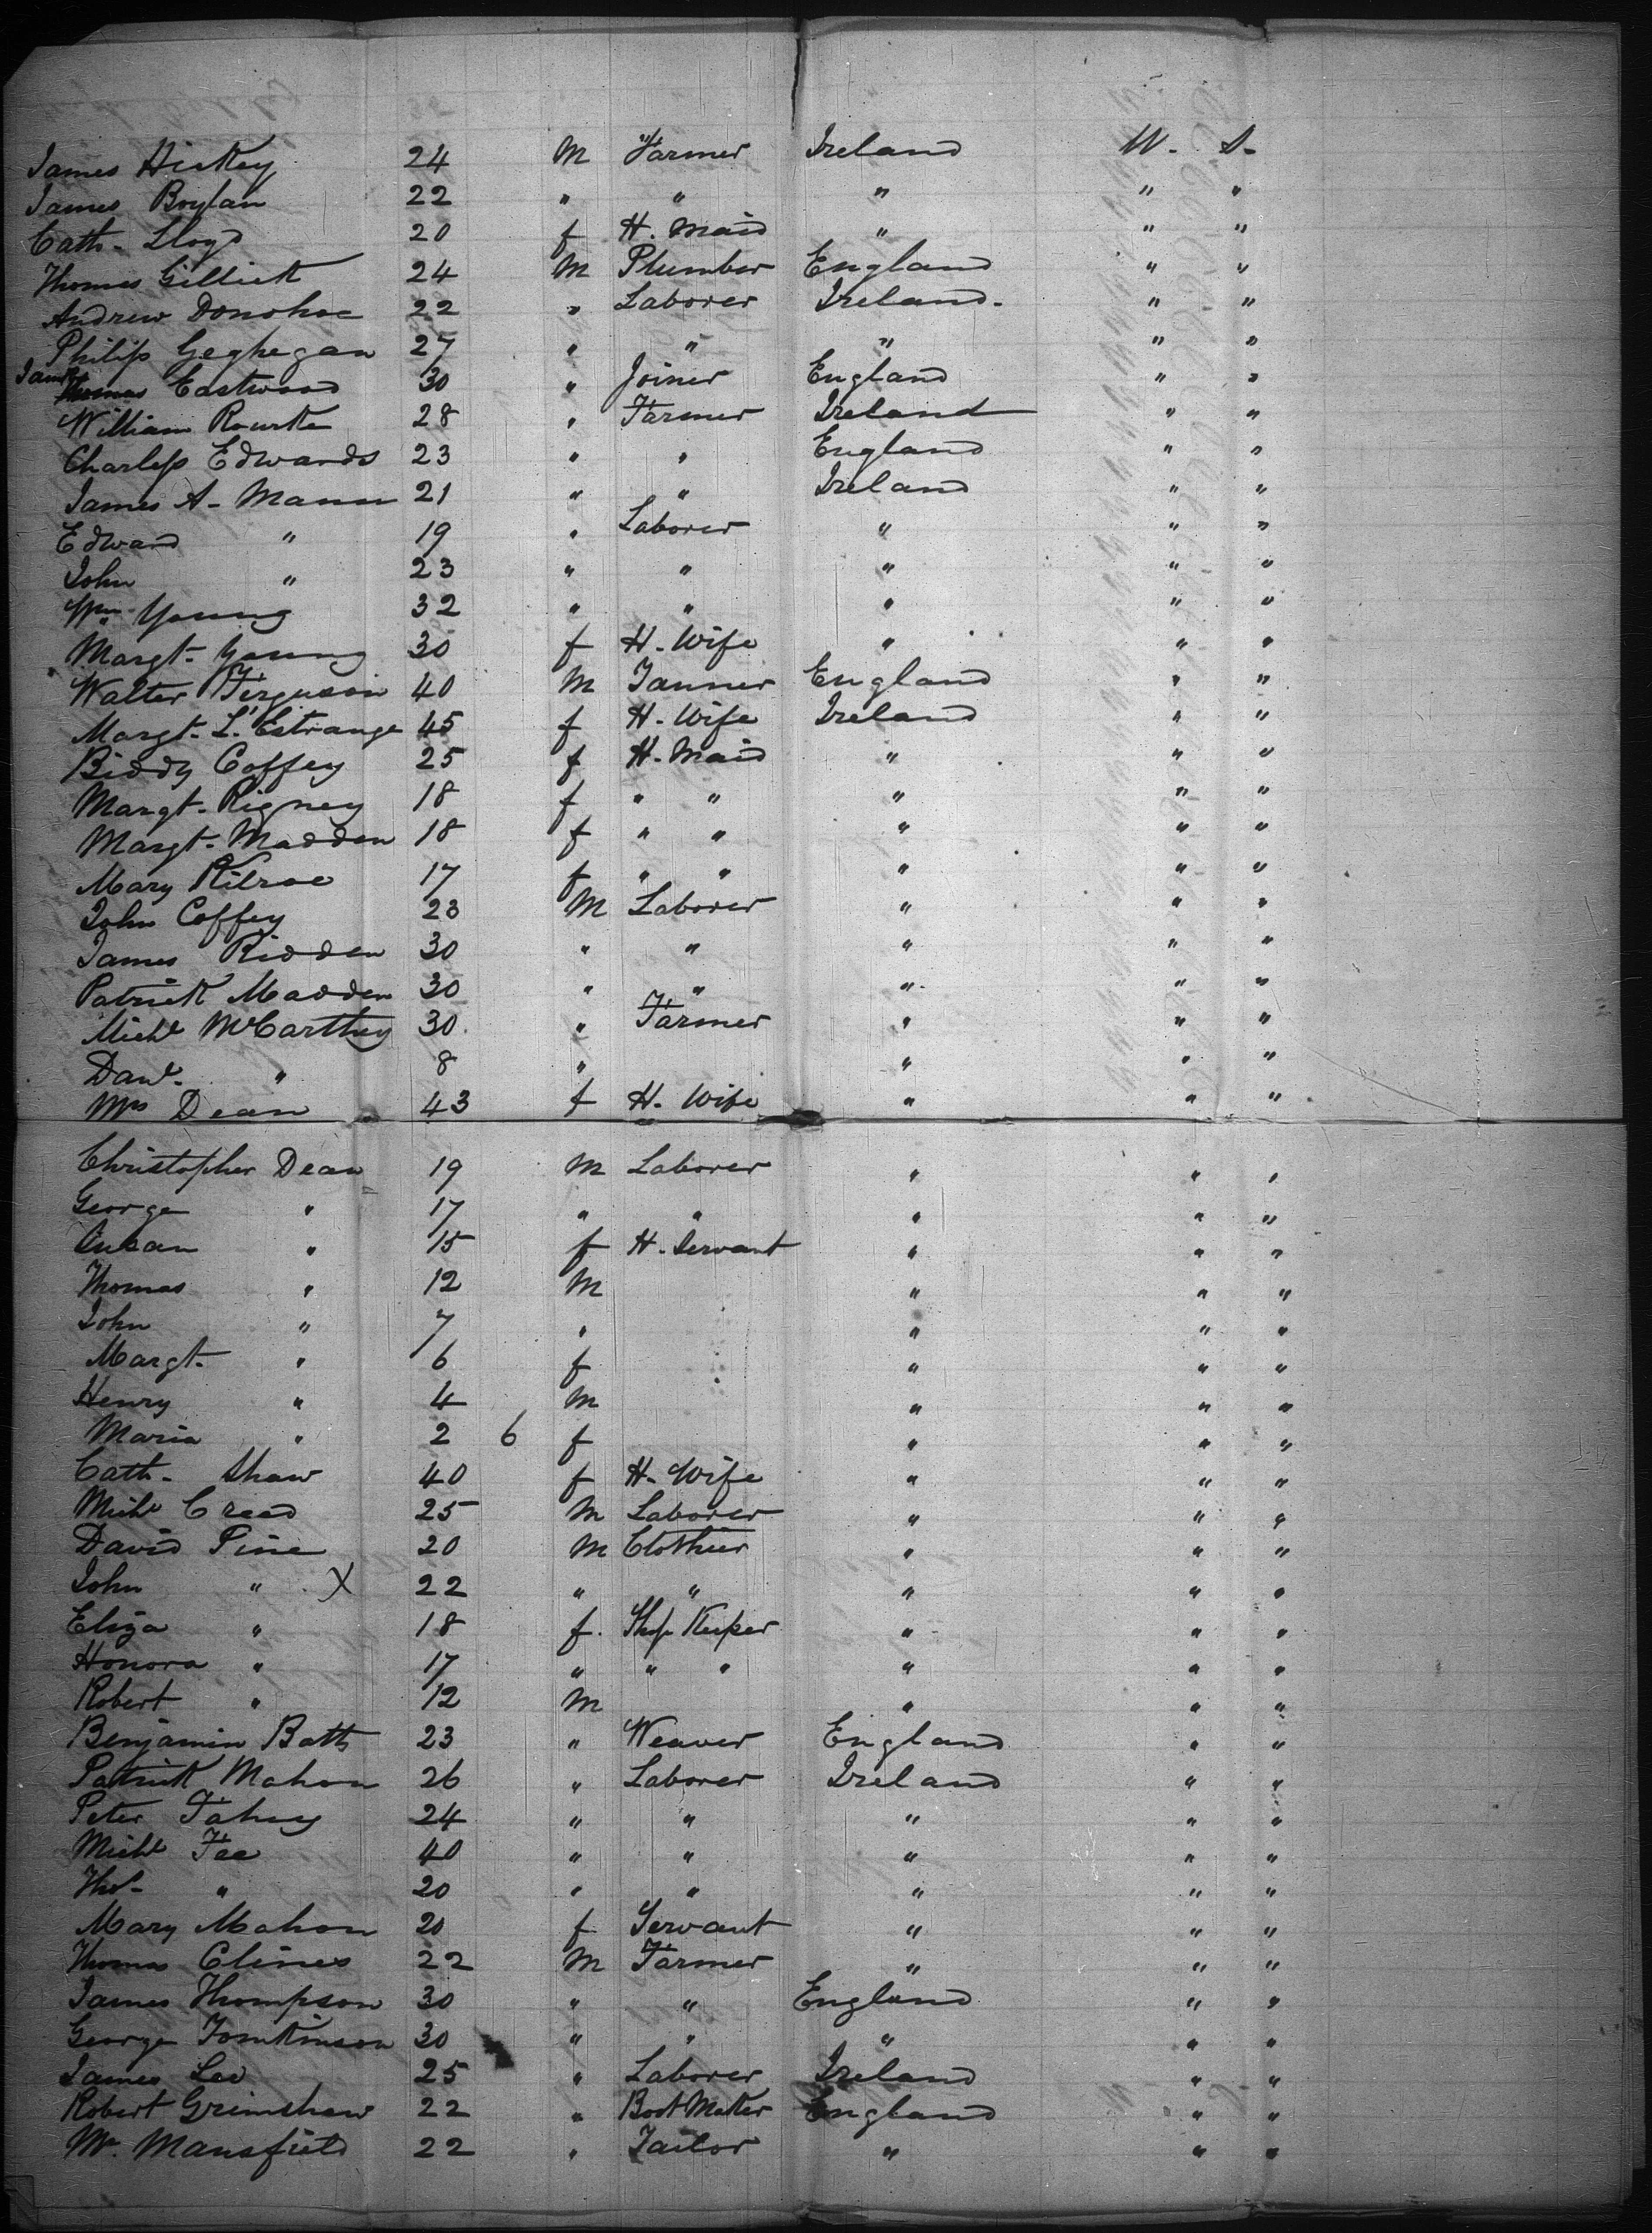 James Hickey 24 M Farmer Ireland U. S.
James Boylan 22 " " " " "
Cath. Lloyd 20 f H. Maid " " "
Thomas Gillick 24 M Plumber England " "
Andrew Donohoe 22 " Laborer Ireland. " "
Philip Geghegan 27 " " " " "
James Eastwood 30 " Joiner England " "
William Rourke 28 " Farmer Ireland " "
Charles Edwards 23 " " England " "
James A. Mann 21 " " Ireland " "
Edward " 19 " Laborer " " "
John " 23 " " " " "
Wm Young 32 " " " " "
Margt. Young 30 f H. Wife " " "
Walter Ferguson 40 M Tanner England " "
Margt. L'Estrange 45 f H. Wife Ireland " "
Biddy Coffey 25 f H. Maid " " "
Margt. Rigney 18 f " " " " "
Margt. Madden 18 f " " " " "
Mary Kilroe 17 f " " " " "
John Coffey 23 M Laborer " " "
James Ridden 30 " " " " "
Patrick Madden 30 " " " " "
Michl McCarthy 30 " Farmer " " "
Danl. " 8 " " " "
Mrs Dean 43 f H. Wife " " "
Christopher Dean 19 M Laborer " " "
George " 17 " " " " "
Susan " 15 f H. Servant " " "
Thomas " 12 M " " "
John " 7 " " " "
Margt. " 6 f " " "
Henry " 4 M " " "
Maria " 2 6 f " " "
Cath. Shaw 40 f H. Wife " " "
Michl Creed 25 M Laborer " " "
David Pine 20 M Clothier " " "
John " X 22 " " " " "
Eliza " 18 f. Shop Keeper " " "
Honora " 17 " " " " " "
Robert " 12 M " " "
Benjamin Batts 23 " Weaver England " "
Patrick Mahon 26 " Laborer Ireland " "
Peter Fahey 24 " " " " "
Michl Fee 40 " " " " "
Thos. " 20 " " " " "
Mary Mahon 20 f Servant " " "
Thomas Clines 22 M Farmer " " "
James Thompson 30 " " England " "
George Tomkinson 30 " " " " "
James Lee 25 " Laborer Ireland " "
Robert Grimshaw 22 " Boot Maker England " "
W. Mansfield 22 " Tailor " " "